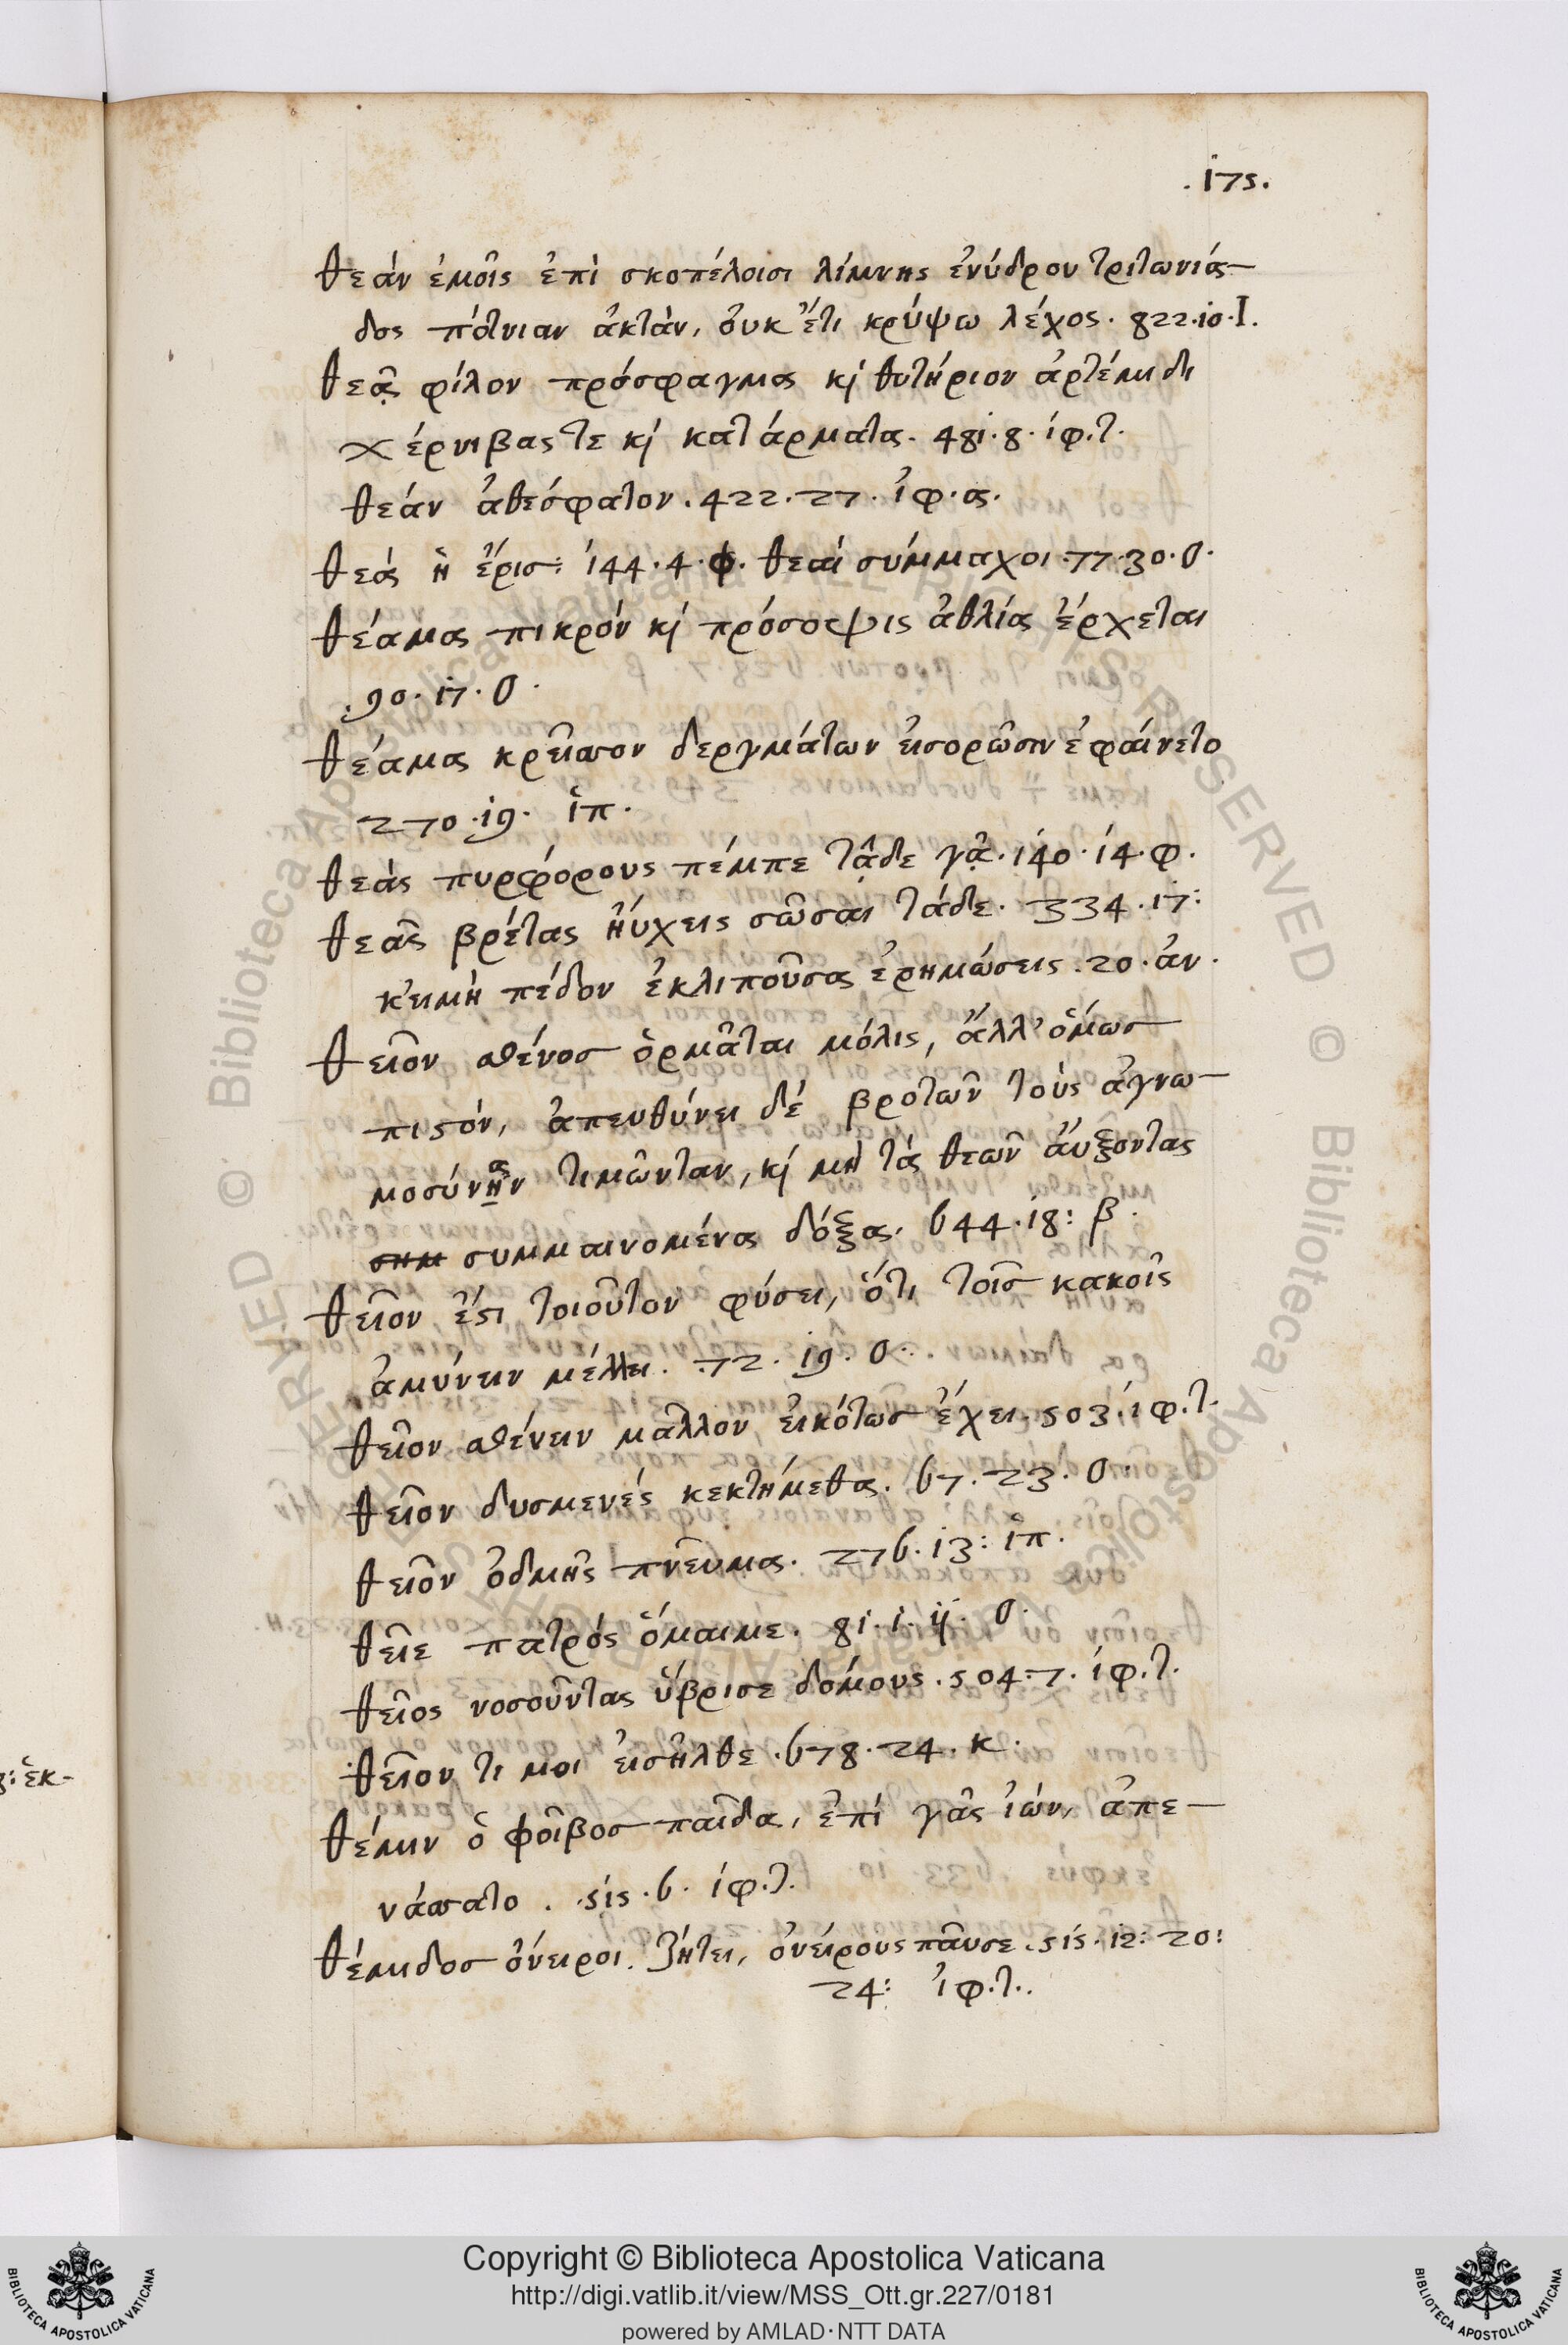 .175.
θεάν ἐμοῖς ἐπὶ σκοπέλοισι λίμνης ἐνύδρου τριτωνιά–
δος πότνιαν ἀκτάν, ὀυκ ἔτι κρύψω λέχος. 822.10.Ι.
θεᾶς φίλον πρόσφαγμα κὶ θυτήριον ἀρτέμιδι
χέρνιβας τε κὶ κατάρματα. 481.8. ἰφ.τ.
θεάν ἀθεόφατον. 422.27. ἰφ.α.
θεά ἡ ἔρισ: 144.4.φ. θεαί σύμμαχοι. 77.30.Ο.
θέαμα πικρόν κὶ πρόσοψις ἀθλία ἔρχεται
.90.17.Ο.
θέαμα κρεῖσσον δεργμάτων ἐισορῶσιν ἐφαίνετο
270.19. ἱπ.
θεάς πυρφόρους πέμπε τᾷδε γᾷ. 140.14.φ.
θεᾶς βρέτας ἠύχεις σῶσαι τάδε. 334.17:
κ'ειμὴ πέδον ἐκλιποῦσα ἐρημώσεις. 20. ἀν.
θειον σθένοσ ὁρμᾶται μόλις, ἀλλ' ὁμωσ
πιςόν, ἀπευθύνει δέ βροτῶν τοὺς ἀγνω–
μοσύνην α τιμῶνταν, κὶ μὴ τά θεῶν ἄυξοντας
συμμαινομένα δόξα. 644.18: β.
θεῖον ἔςι τοιοῦτον φύσει, ὅτι τοῖσ κακοῖς
ἀμύνειν μέλλει. .72.19.Ο..
θεῖον σθένειν μᾶλλον ἐικότωσ ἔχει. 503.ἰφ.τ.
θεῖον δυσμενές κεκτήμεθα. 67.23.Ο.
θεῖον ὀδμῆς πνεῦμα. 276.13: ἱπ.
θεῖε πατρός ὅμαιμε. 81.1.ij. Ο.
θεῖος νοσοῦντας ὕβρισε δόμους. 504.7. ἰφ.τ.
θεῖον τι μοι ἐισῆλθε. 678.24.κ.
θέμιν ὁ φοῖβοσ παῖδα, ἐπί γᾶς ἰών, ἀπε–
νάσσατο. .515.6. ἰφ.τ.
θέμιδοσ ὄνειροι. ζήτει, ὀνείρους παῦσε. 515.12: 20:
24: ἰφ.τ..
3: ἐκ-
Copyright © Biblioteca Apostolica Vaticana
http://digi.vatlib.it/view/MSS_Ott.gr.227/0181
powered by AMLAD·NTT DATA